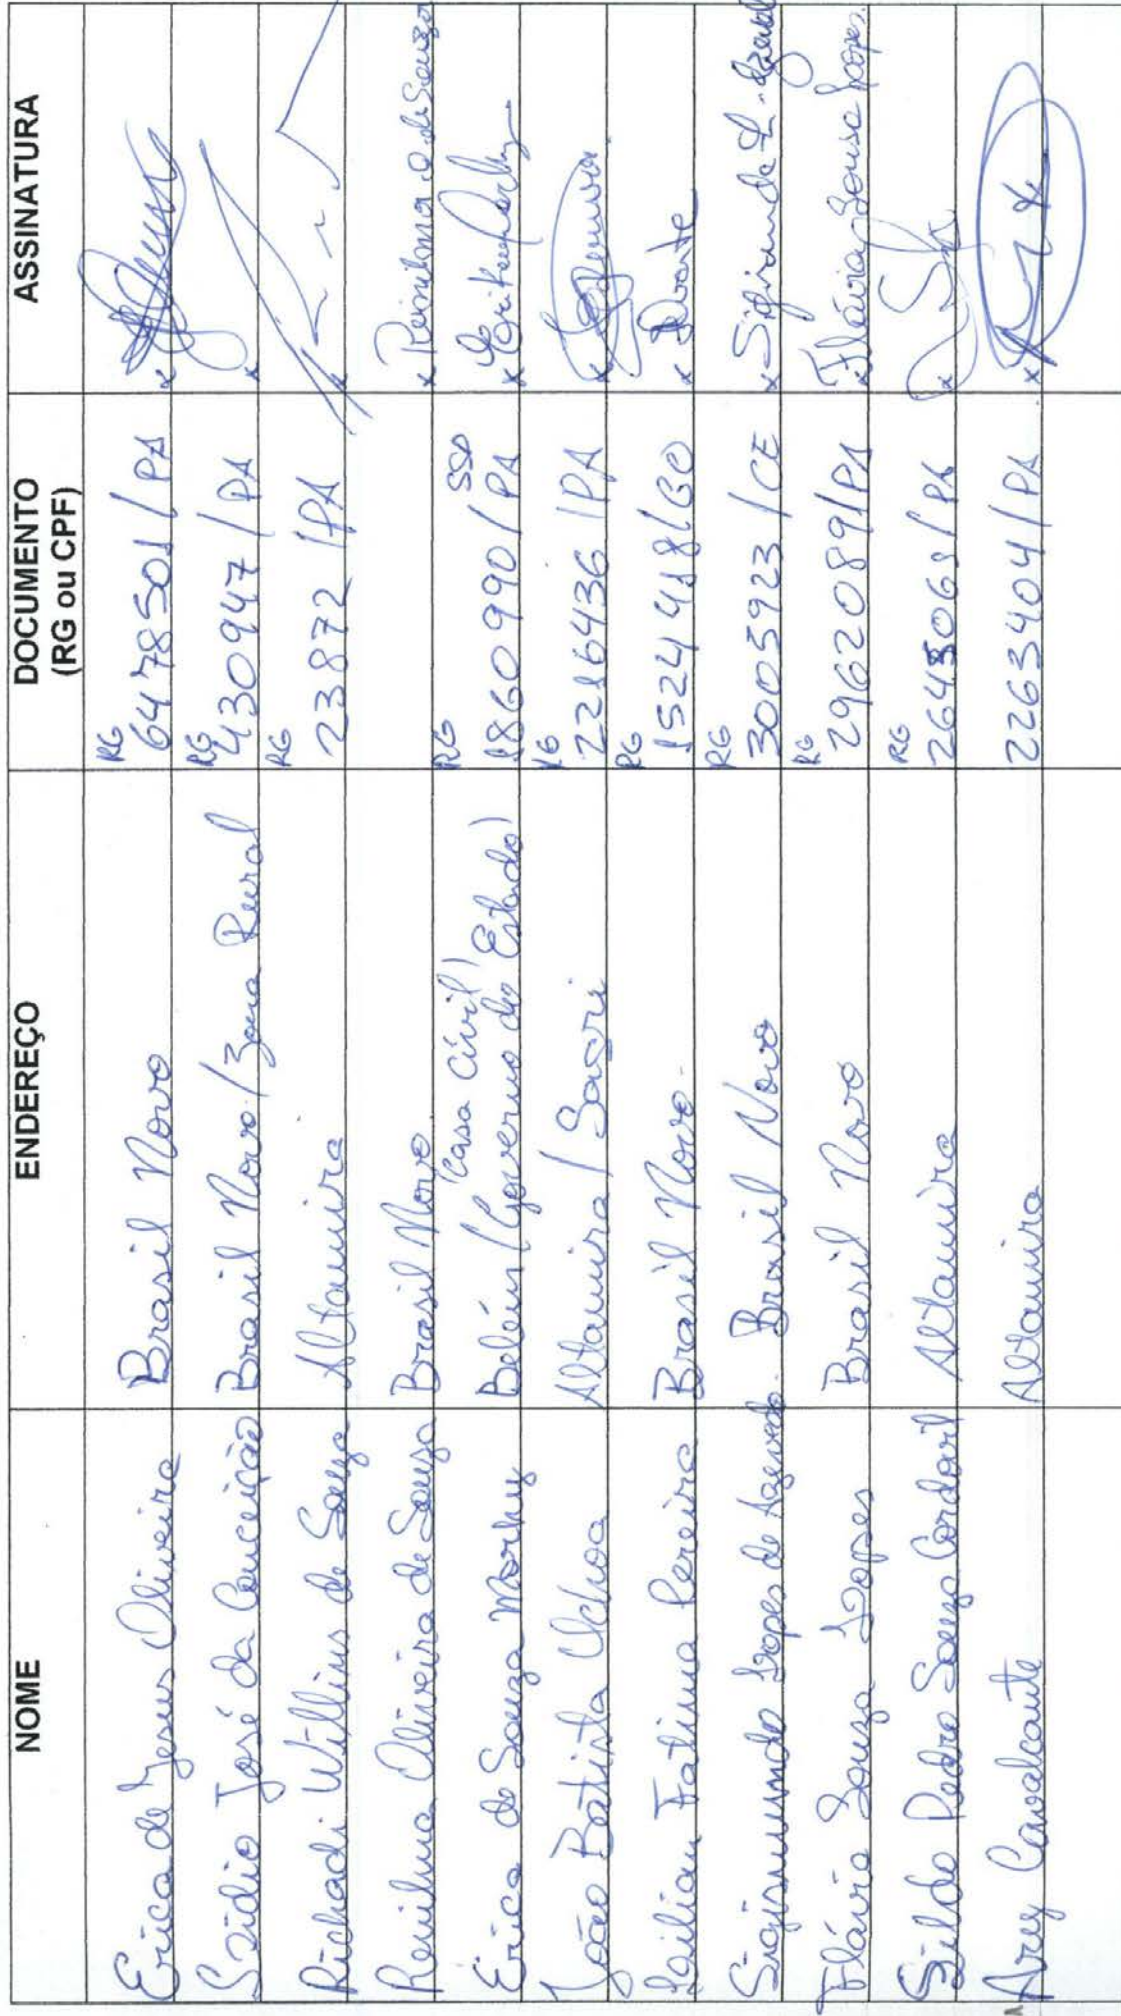 NOME ENDEREÇO DOCUMENTO (RG ou CPF) ASSINATURA
Erica de Jesus Oliveira Brasil Novo RG 6478501 / PA
José da Conceição Brasil Novo / Zona Rural RG 430947 / PA
Richadi Willins de Souza Altamira RG 23872 / PA
Renilma Oliveira de Souza Brasil Novo Renilma O. de Souza
Erica de Souza Morhy Belém (Governo do Estado) Casa Civil RG 1860990 / PA SSP
João Batista Uchoa Altamira / Sagri RG 22164436 / PA
Lilian Fatima Pereira Brasil Novo RG 1524418 / GO
Sigismundo Lopes de Azevedo Brasil Novo RG 3005923 / CE
Flávia Souza Lopes Brasil Novo RG 2962089 / PA Flávia Sousa Lopes
Sildo Pedro Souza Altamira RG / PA
Ary Cavalcante Altamira 2263404 / PA